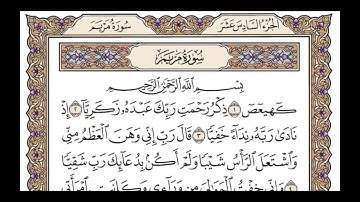 الجزء السادس عشر
سورة مريم
سورة مريم
بسم الله الرحمن الرحيم
كهيعص ١ ذكر رحمت ربك عبده زكريا ٢ إذ
نادى ربه نداء خفيا ٣ قال رب إني وهن العظم مني
واشتعل الرأس شيبا ولم أكن بدعائك رب شقيا
وإني خفت الموالي من وراءي وكانت امرأتي